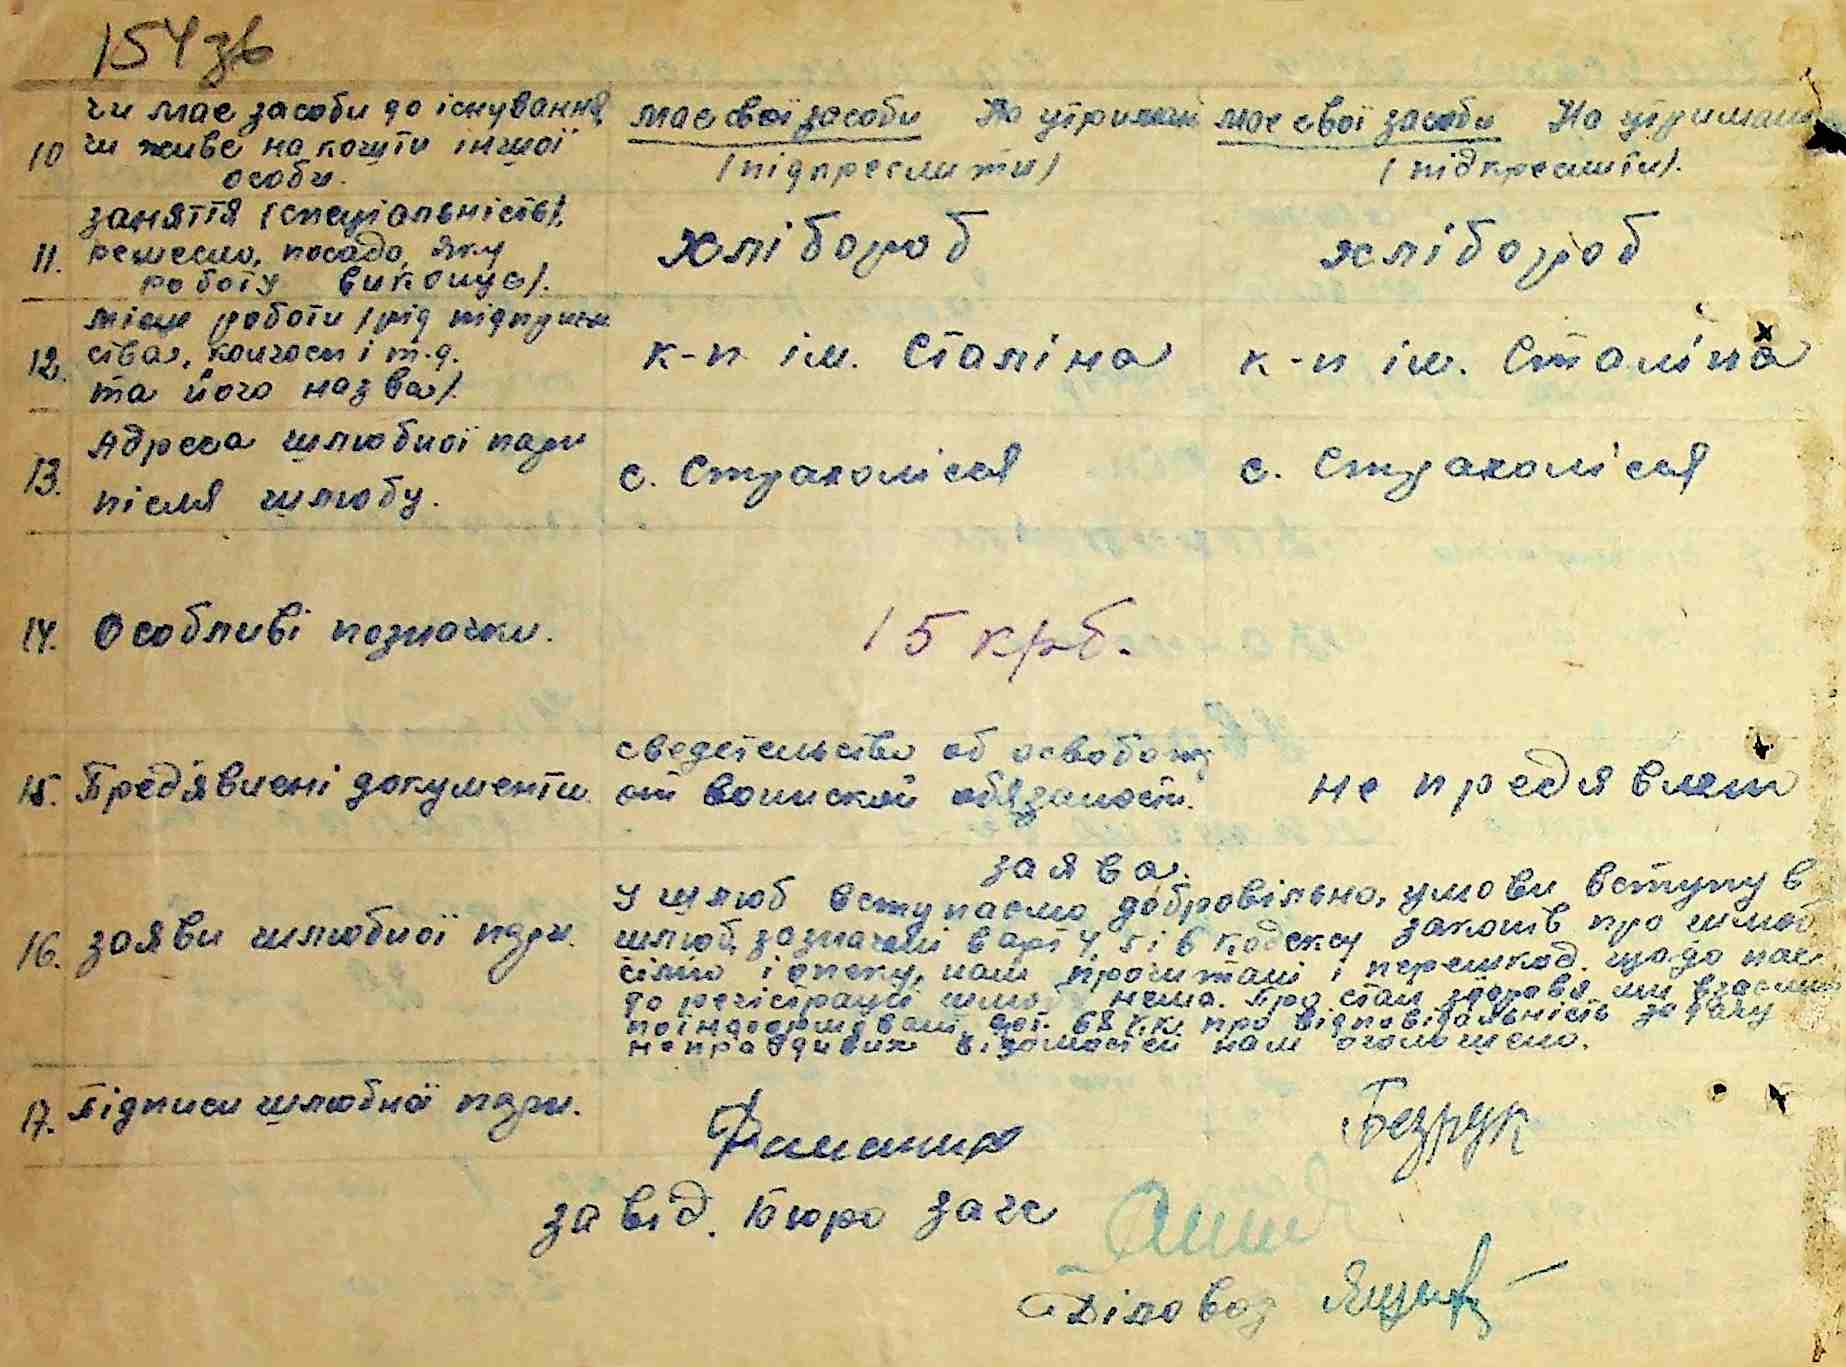 154 зв
10 чи має засоби до існування, чи живе на кошти іншої особи. має свої засоби На утриманні (підпреслити) має свої засоби На утриманні (підкреслити).
11. заняття (спеціальність, ремесло, посада, яку роботу виконує). хлібороб хлібороб
12. місце роботи (рід підприємства, колгосп і т.д. та його назва). к-п ім. Сталіна к-п ім. Сталіна
13. Адреса шлюбної пари після шлюбу. с. Страхолісся с. Страхолісся
14. Особливі позначки. 15 крб.
15. Пред'явлені документи. сведетельство об освобожд от воинской обязаности. не предявлен
16. заяви шлюбної пари. заява.
У шлюб вступаємо добровільно, умови вступу в
шлюб, зазначені в арт 4, 5 і 6 Кодексу законів про шлюб
сім'ю і опеку, нам прочитані і перешкод щодо нас
до регістрації шлюбу нема. Про стан здоровя ми взаємно
поінформовані, арт. 68 К.К. про відповідальність за дачу
неправдивих відомостей нам оголошено.
17. Підписи шлюбної пари. Безрук
завід. Бюро загс
Діловод